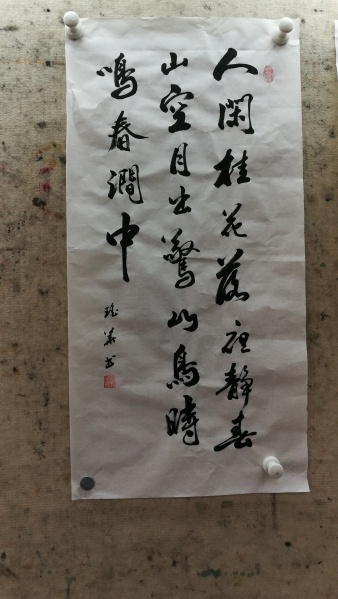 人閑桂花落夜静春
山空月出驚山鳥時
鳴春澗中
书